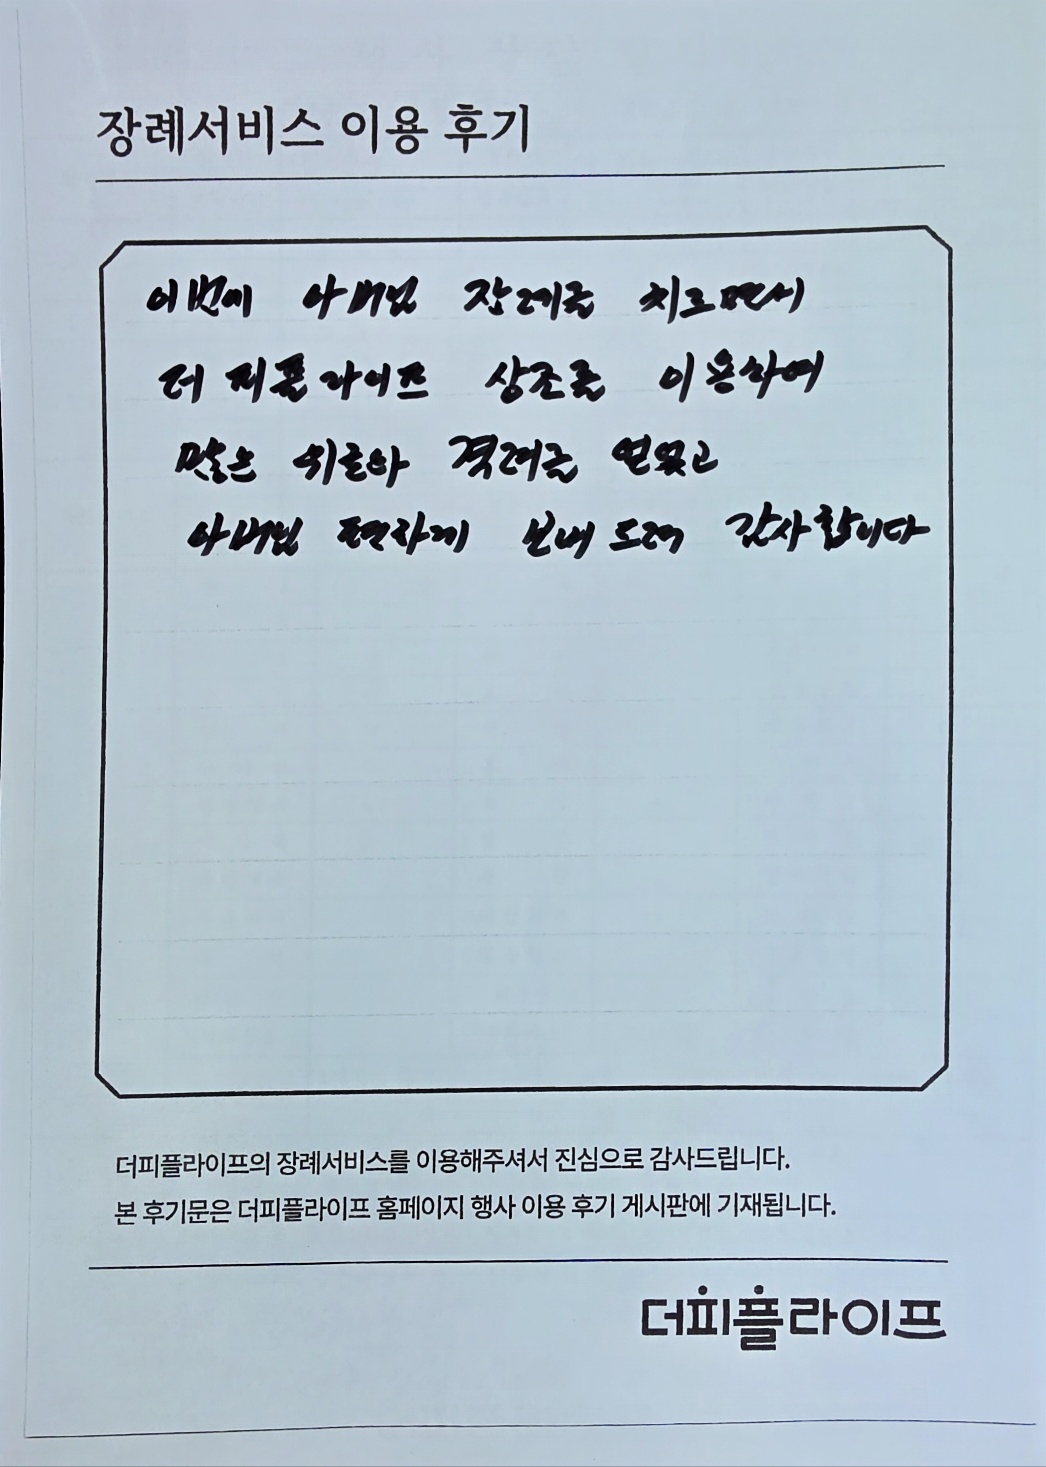 장례서비스 이용 후기
이번에 아버님 장례를 치르면서
더피플라이프 상조를 이용하여
많은 위로와 격려를 얻었고
아버님 편하게 보내드려 감사합니다
더피플라이프의 장례서비스를 이용해주셔서 진심으로 감사드립니다.
본 후기문은 더피플라이프 홈페이지 행사 이용 후기 게시판에 기재됩니다.
더피플라이프